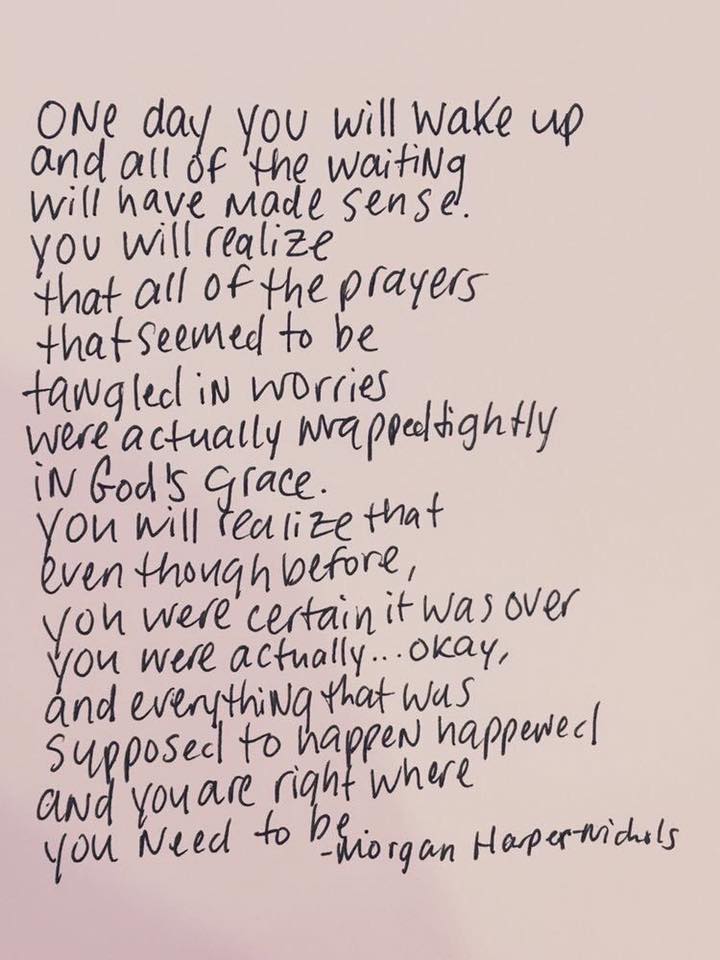 ONE day you will wake up
and all of the waiting
will have made sense.
you will realize
that all of the prayers
that seemed to be
tangled in worries
were actually wrapped tightly
in God's grace.
you will realize that
even though before,
you were certain it was over
you were actually...okay,
and everything that was
supposed to happen happened
and you are right where
you need to be
-Morgan Harper Nichols